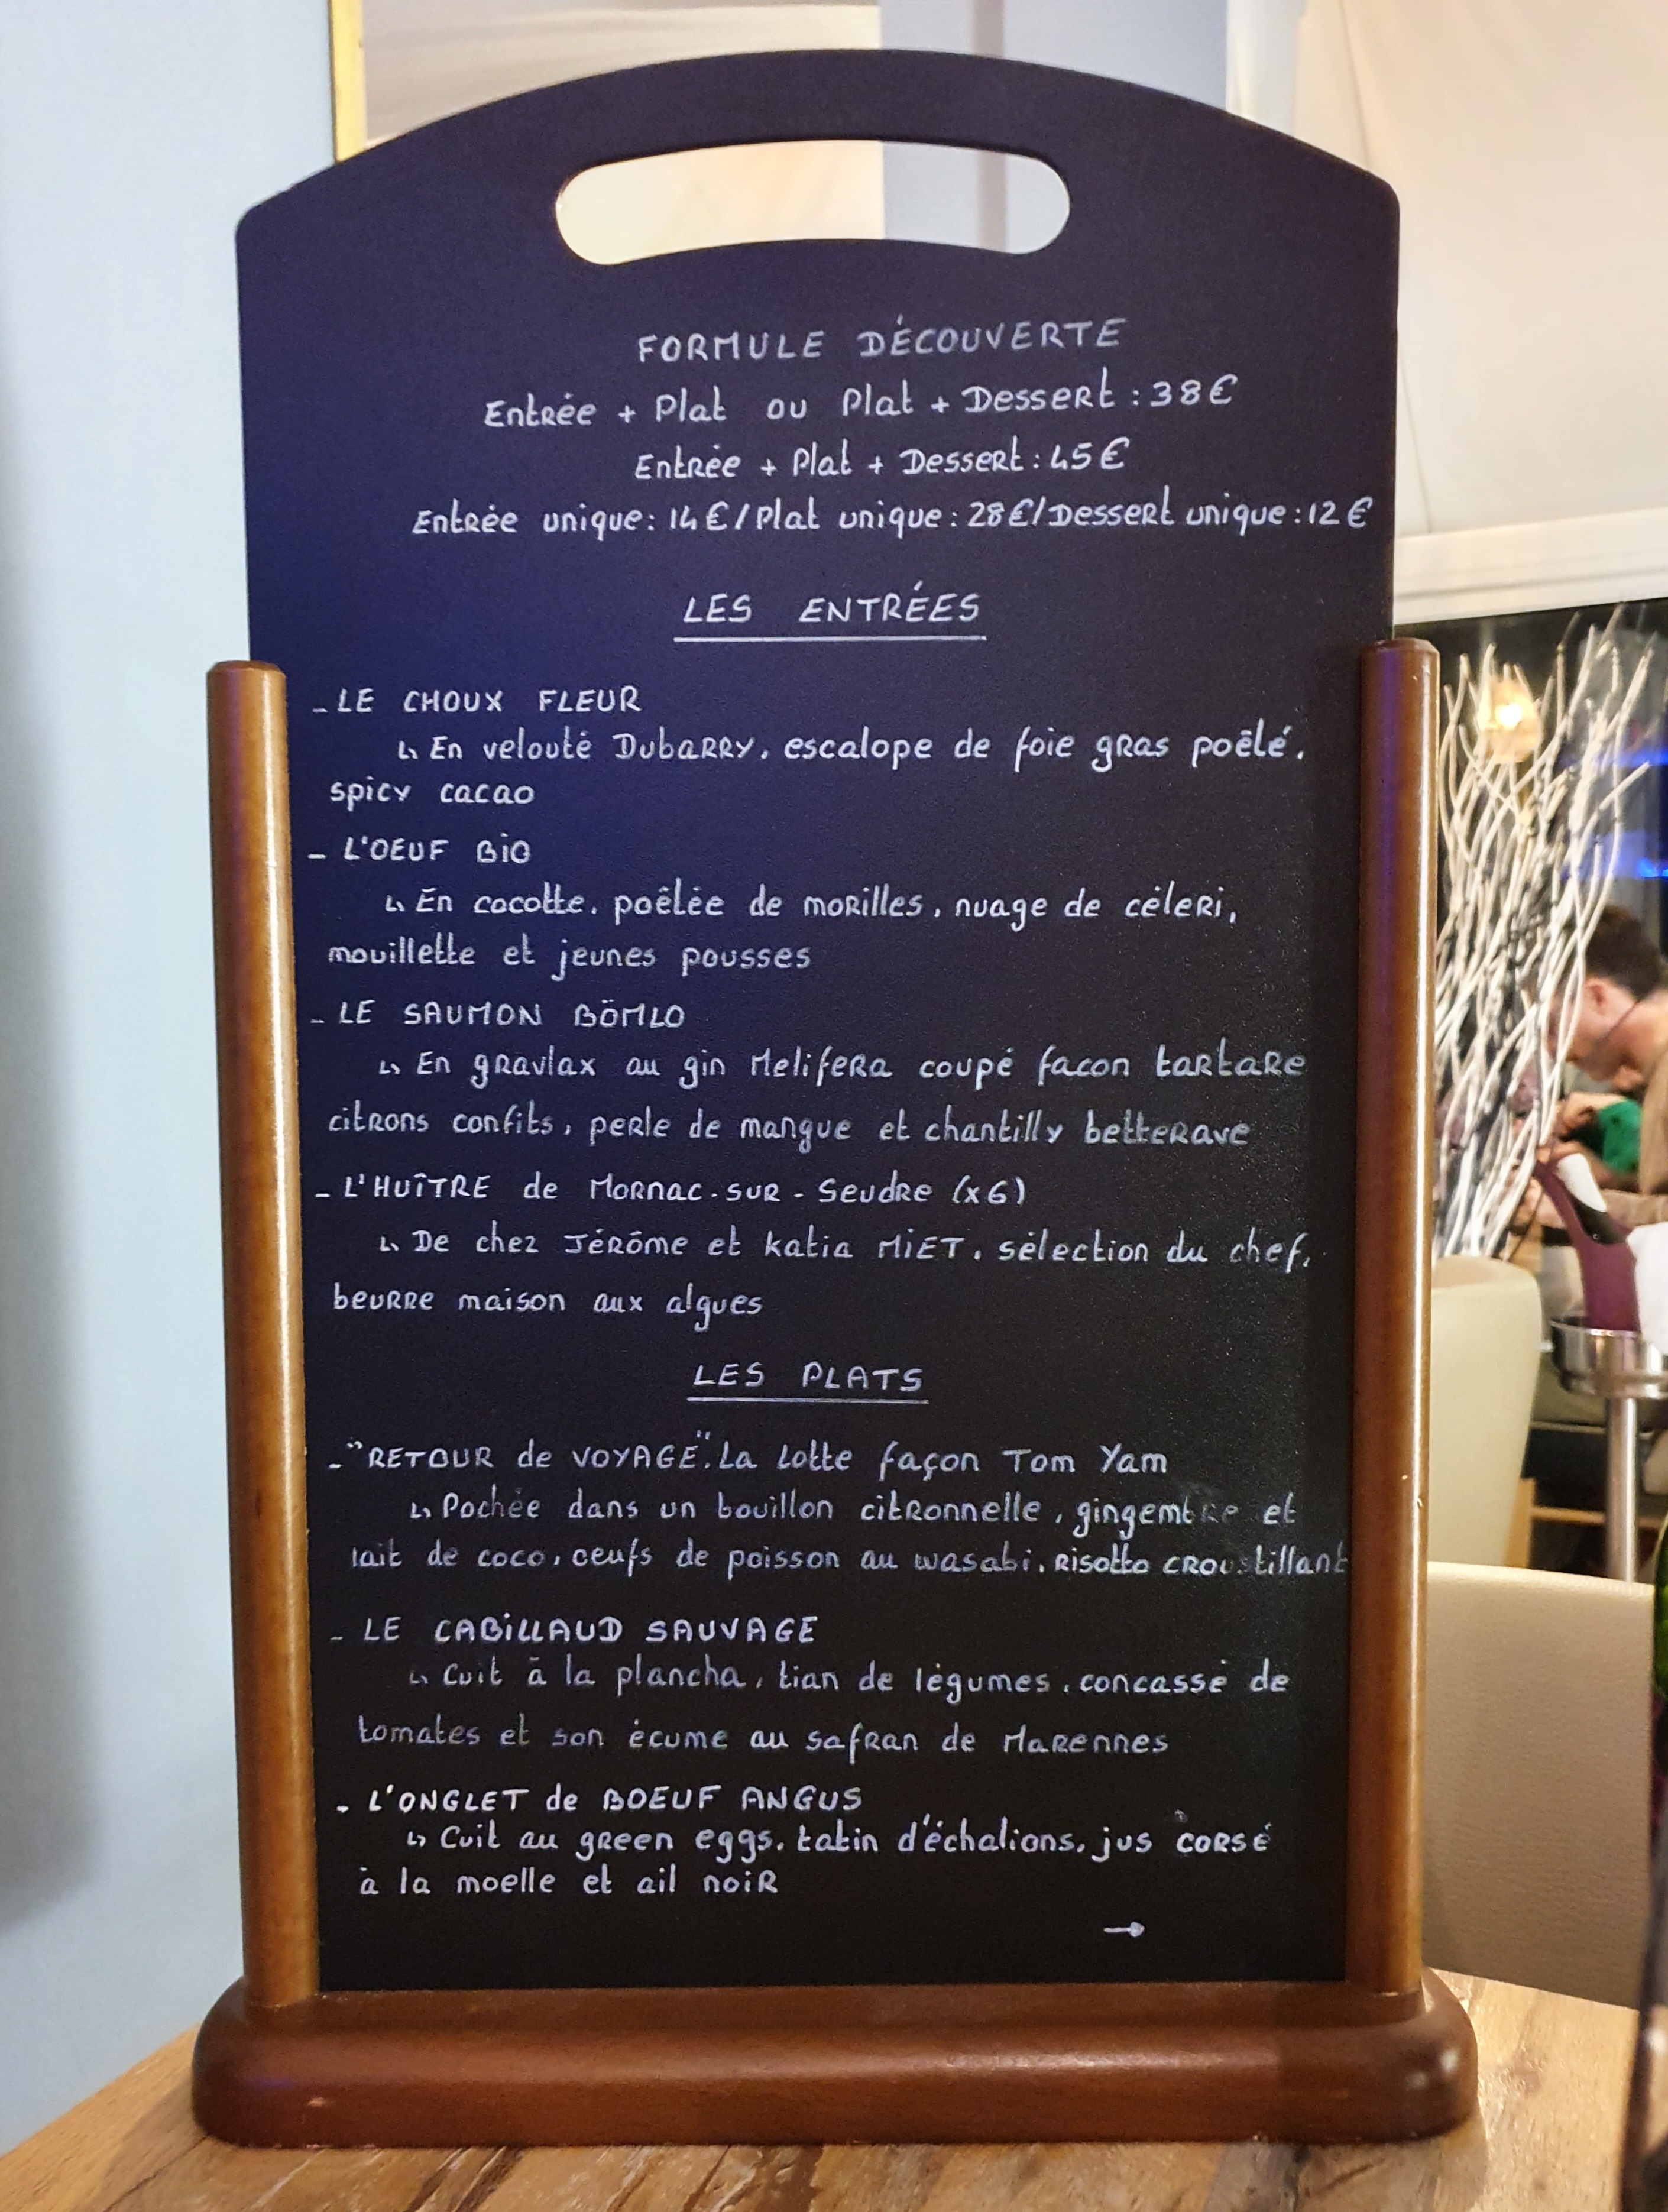 FORMULE DÉCOUVERTE
Entrée + Plat ou Plat + Dessert : 38€
Entrée + Plat + Dessert : 45€
Entrée unique : 14€/Plat unique : 28€/Dessert unique : 12€
LES ENTRÉES
- LE CHOUX FLEUR
↳ En velouté Dubarry, escalope de foie gras poêlé,
spicy cacao
- L'OEUF BiO
↳ En cocotte, poêlée de morilles, nuage de céleri,
mouillette et jeunes pousses
- LE SAUMON BÖMLO
↳ En gravlax au gin Melifera coupé facon tartare
citrons confits, perle de mangue et chantilly betterave
- L'HUÎTRE de Mornac-sur-Seudre (x6)
↳ De chez Jérôme et katia MiET, sélection du chef,
beurre maison aux algues
LES PLATS
- "RETOUR de VOYAGE". La Lotte façon Tom Yam
↳ Pochée dans un bouillon citronnelle, gingembre et
lait de coco, oeufs de poisson au wasabi, Risotto croustillant
- LE CABiLLAUD SAUVAGE
↳ Cuit à la plancha, tian de légumes, concassé de
tomates et son écume au safran de Marennes
- L'ONGLET de BOEUF ANGUS
↳ Cuit au green eggs, tatin d'échalions, jus corsé
à la moelle et ail noir
→